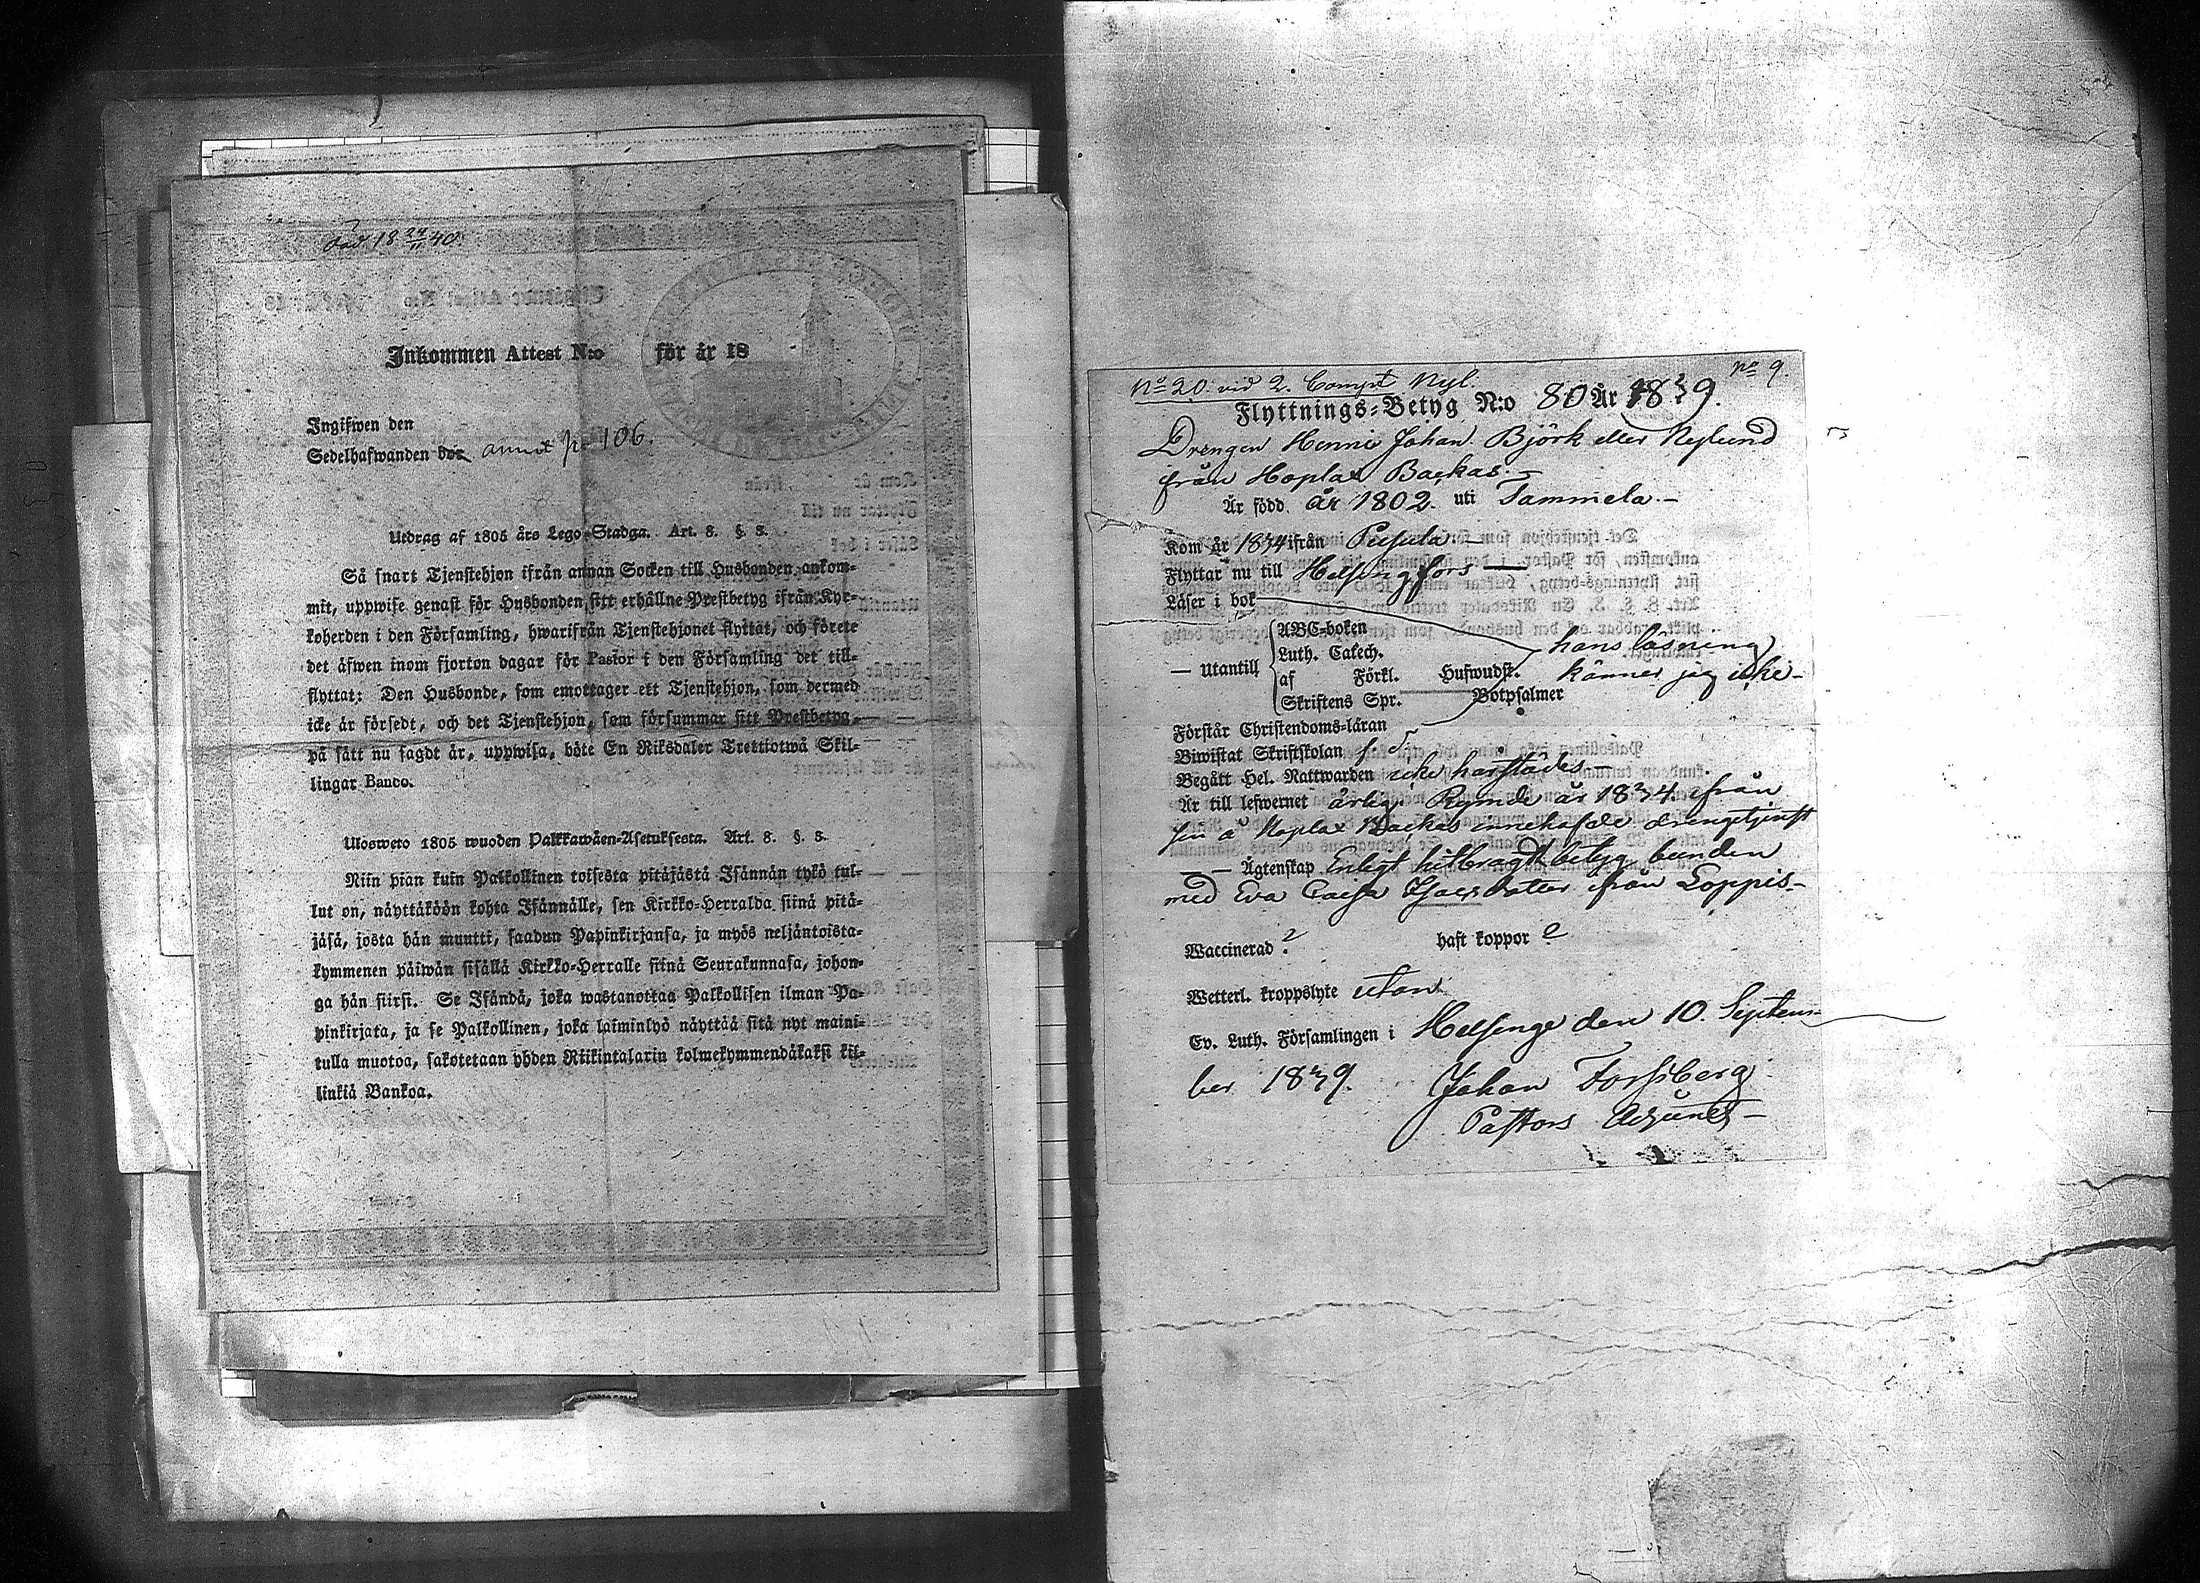 död 18 24/11 40
Inkommen Attest N:o för år 18
Ingifwen den
Sedelhafwanden bor annot p. 106.
Utdrag af 1805 års Lego-Stadga. Art. 8. §. 3.
Så snart Tjenstehjon ifrån annan Socken till Husbonden ankom-
mit, uppwise genast för Husbonden sitt erhållne Prestbetyg ifrån Kyr-
koherden i den Församling, hwarifrån Tjenstehjonet flyttat, och förete
det äfwen inom fjorton dagar för Pastor i den Församling det till-
flyttat: Den Husbonde, som emottager ett Tjenstehjon, som dermed
icke är försedt, och det Tjenstehjon, som försummar sitt Prestbetyg,
på sätt nu sagdt är, uppwisa, böte En Riksdaler Trettiotwå Skil-
lingar Banco.
Ulosweto 1805 wuoden Palkkawäen-Asetuksesta. Art. 8. §. 3.
Niin pian kuin Palkollinen toisesta pitäjästä Isännän tykö tul-
lut on, näyttäköön kohta Isännälle, sen Kirkko-Herralda siinä pitä-
jäsä, josta hän muutti, saadun Papinkirjansa, ja myös neljäntoista-
kymmenen päiwän sisällä Kirkko-Herralle siinä Seurakunnasa, johon-
ga hän siirsi. Se Isändä, joka wastanottaa Palkollisen ilman Pa-
pinkirjata, ja se Palkollinen, joka laiminlyö näyttää sitä nyt maini-
tulla muotoa, sakotetaan yhden Riikintalarin kolmekymmendäkaksi kil-
linkiä Bankoa.
No 20. vid 2. Compt Nyl. no 9.
Flyttnings-Betyg N:o 80 År 1839.
Drengen Henric Johan Björk eller Nylund
från Hoplax Backas.
Är född år 1802. uti Tammela.
Kom år 1834 ifrån Pusula
Flyttar nu till Helsingfors
Läser i bok
— Utantill
ABC-boken
Luth. Catech.
af Förkl. Hufwudst.
Skriftens Spr. Botpsalmer
hans läsning
känner jag icke
Förstår Christendoms-läran
Biwistat Skriftskolan
Begått Hel. Nattwarden icke härstädes
Är till lefwernet ärlig. Rymde år 1834. ifrån
sin å Hoplax Backas innehafde drengetjenst
— Ägtenskap Enligt hitbragdt betyg bunden
med Eva Caisa Isacsdotter från Loppis
Waccinerad ? haft koppor
Wetterl. kroppslyte utan
Ev. Luth. Församlingen i Helsinge den 10. Septem-
ber 1839. Johan Forsberg
Pastors Adjunct